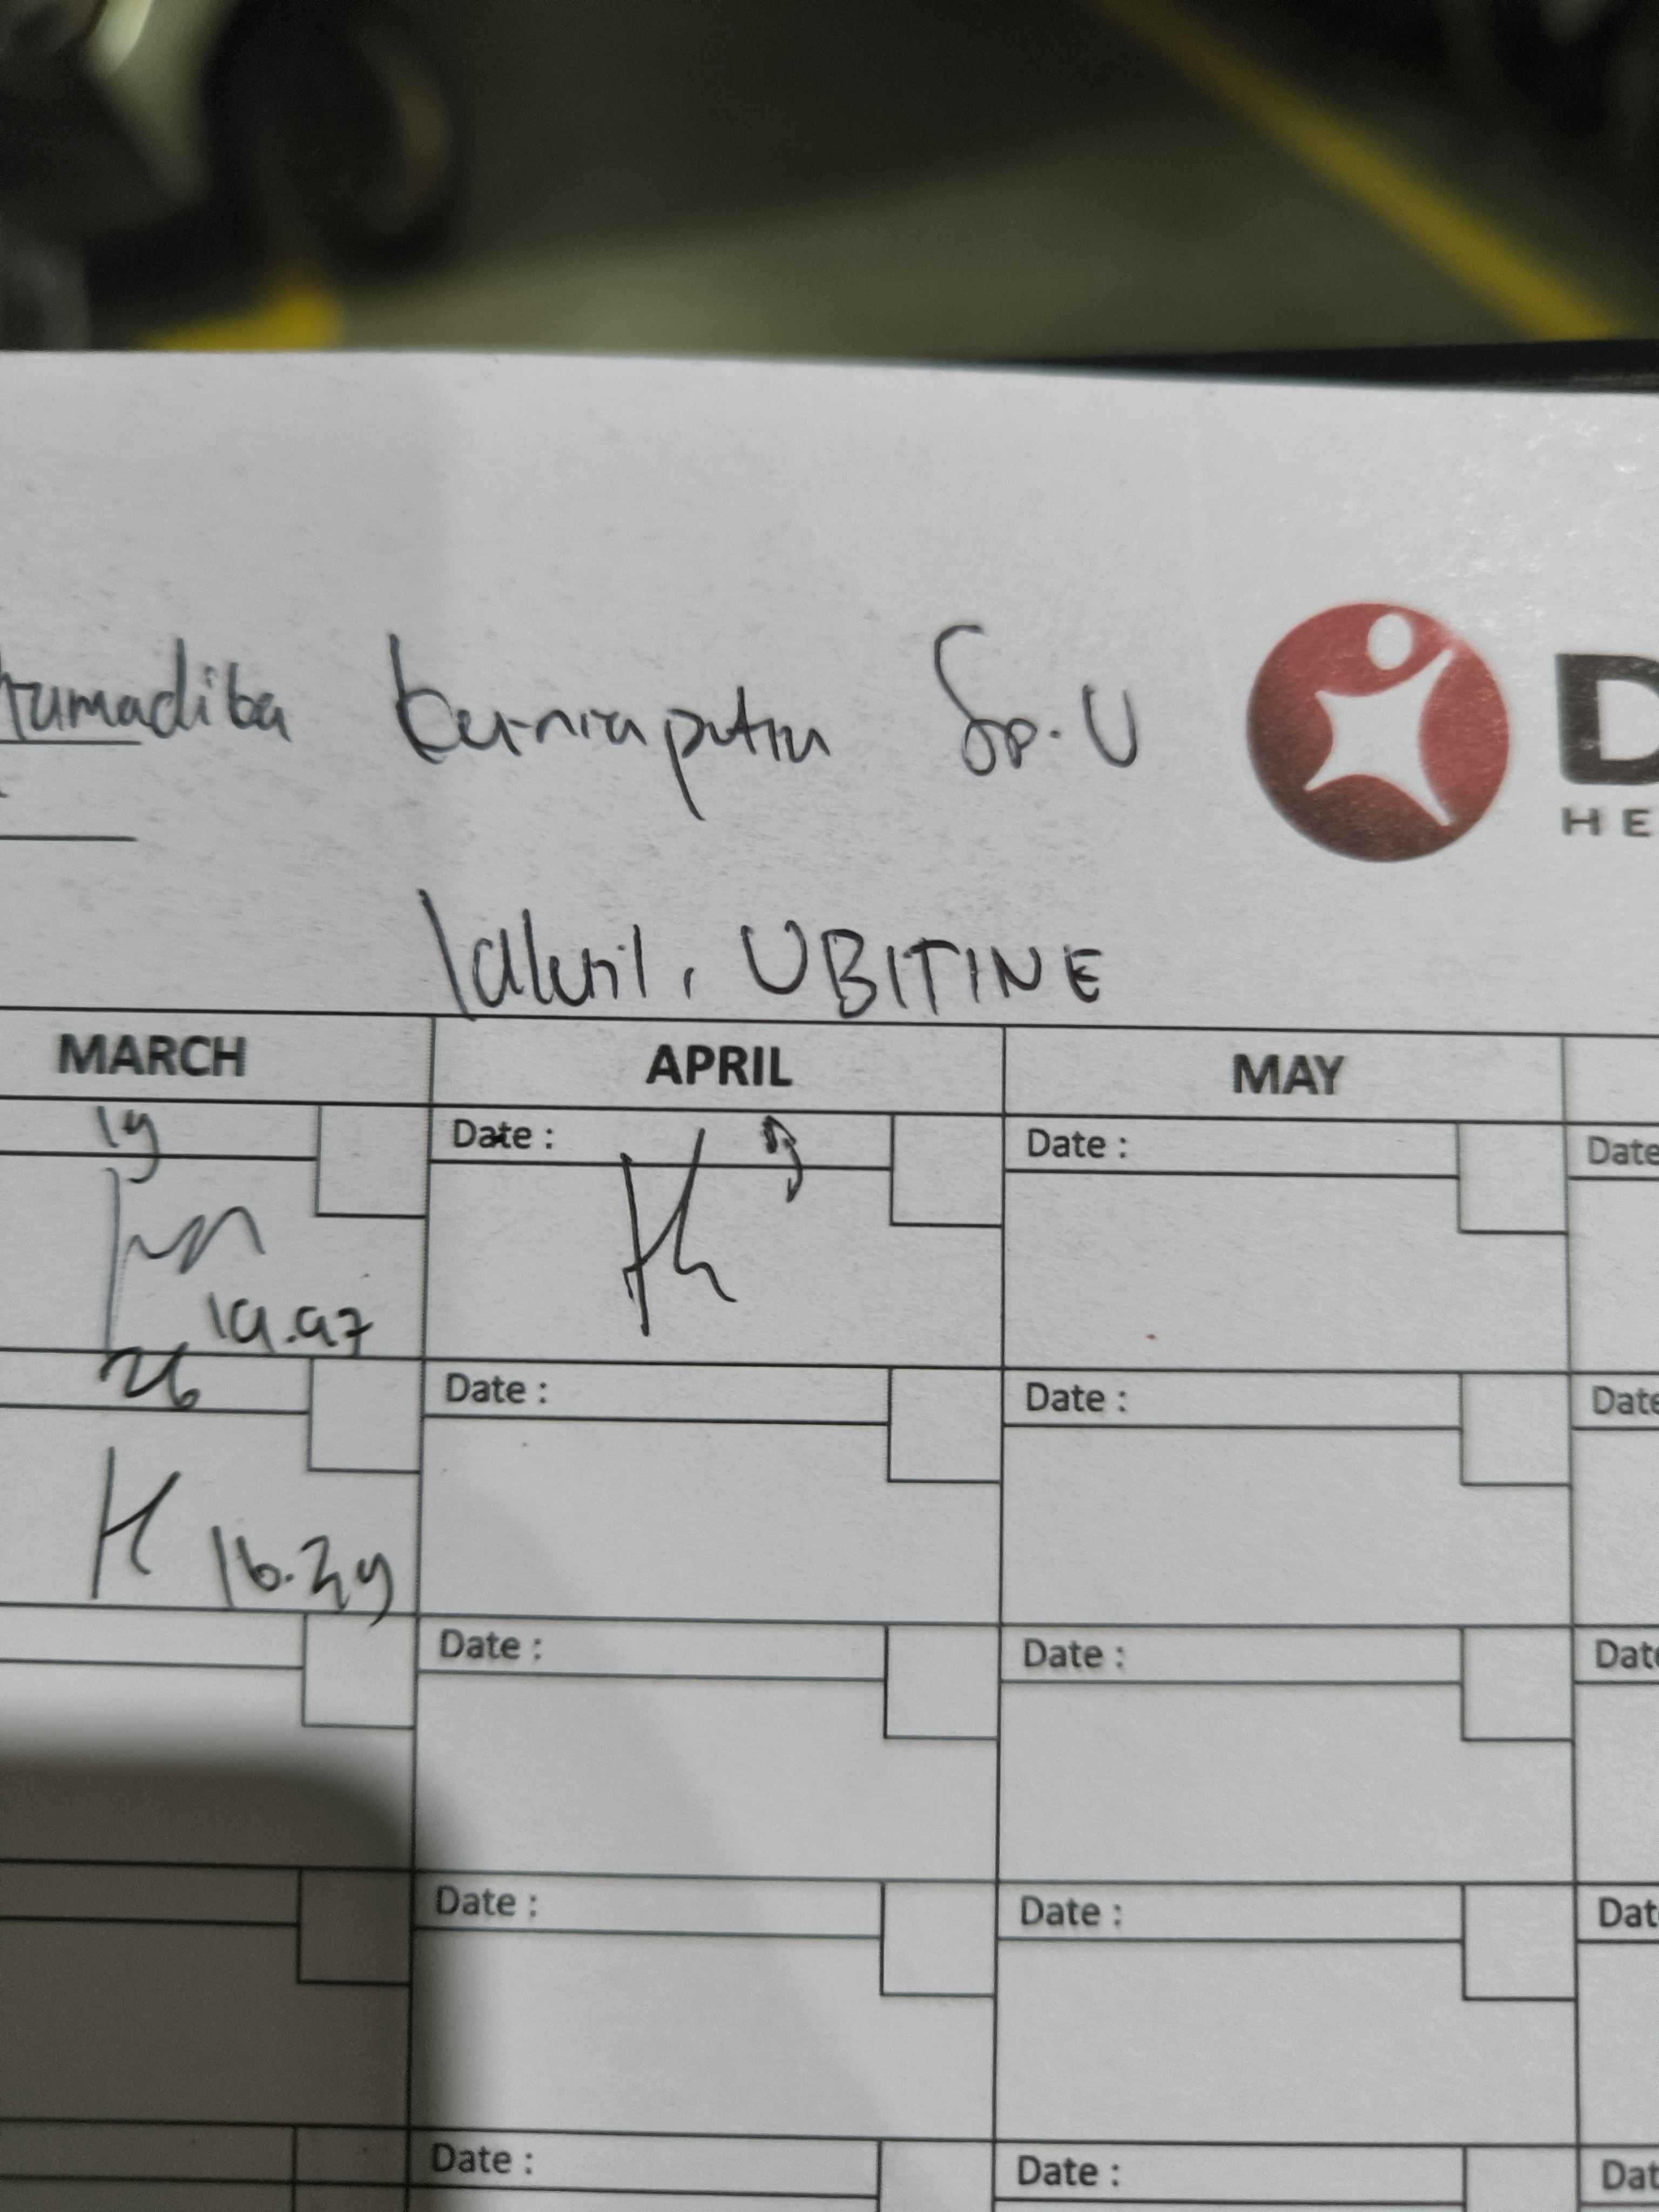 Kurniaputra Sp.U
D
HE
UBITINE
MARCH APRIL MAY
19 Date : Date : Date
19.47
26 Date : Date : Date
16.29
Date : Date : Date
Date : Date : Dat
Date : Date : Dat